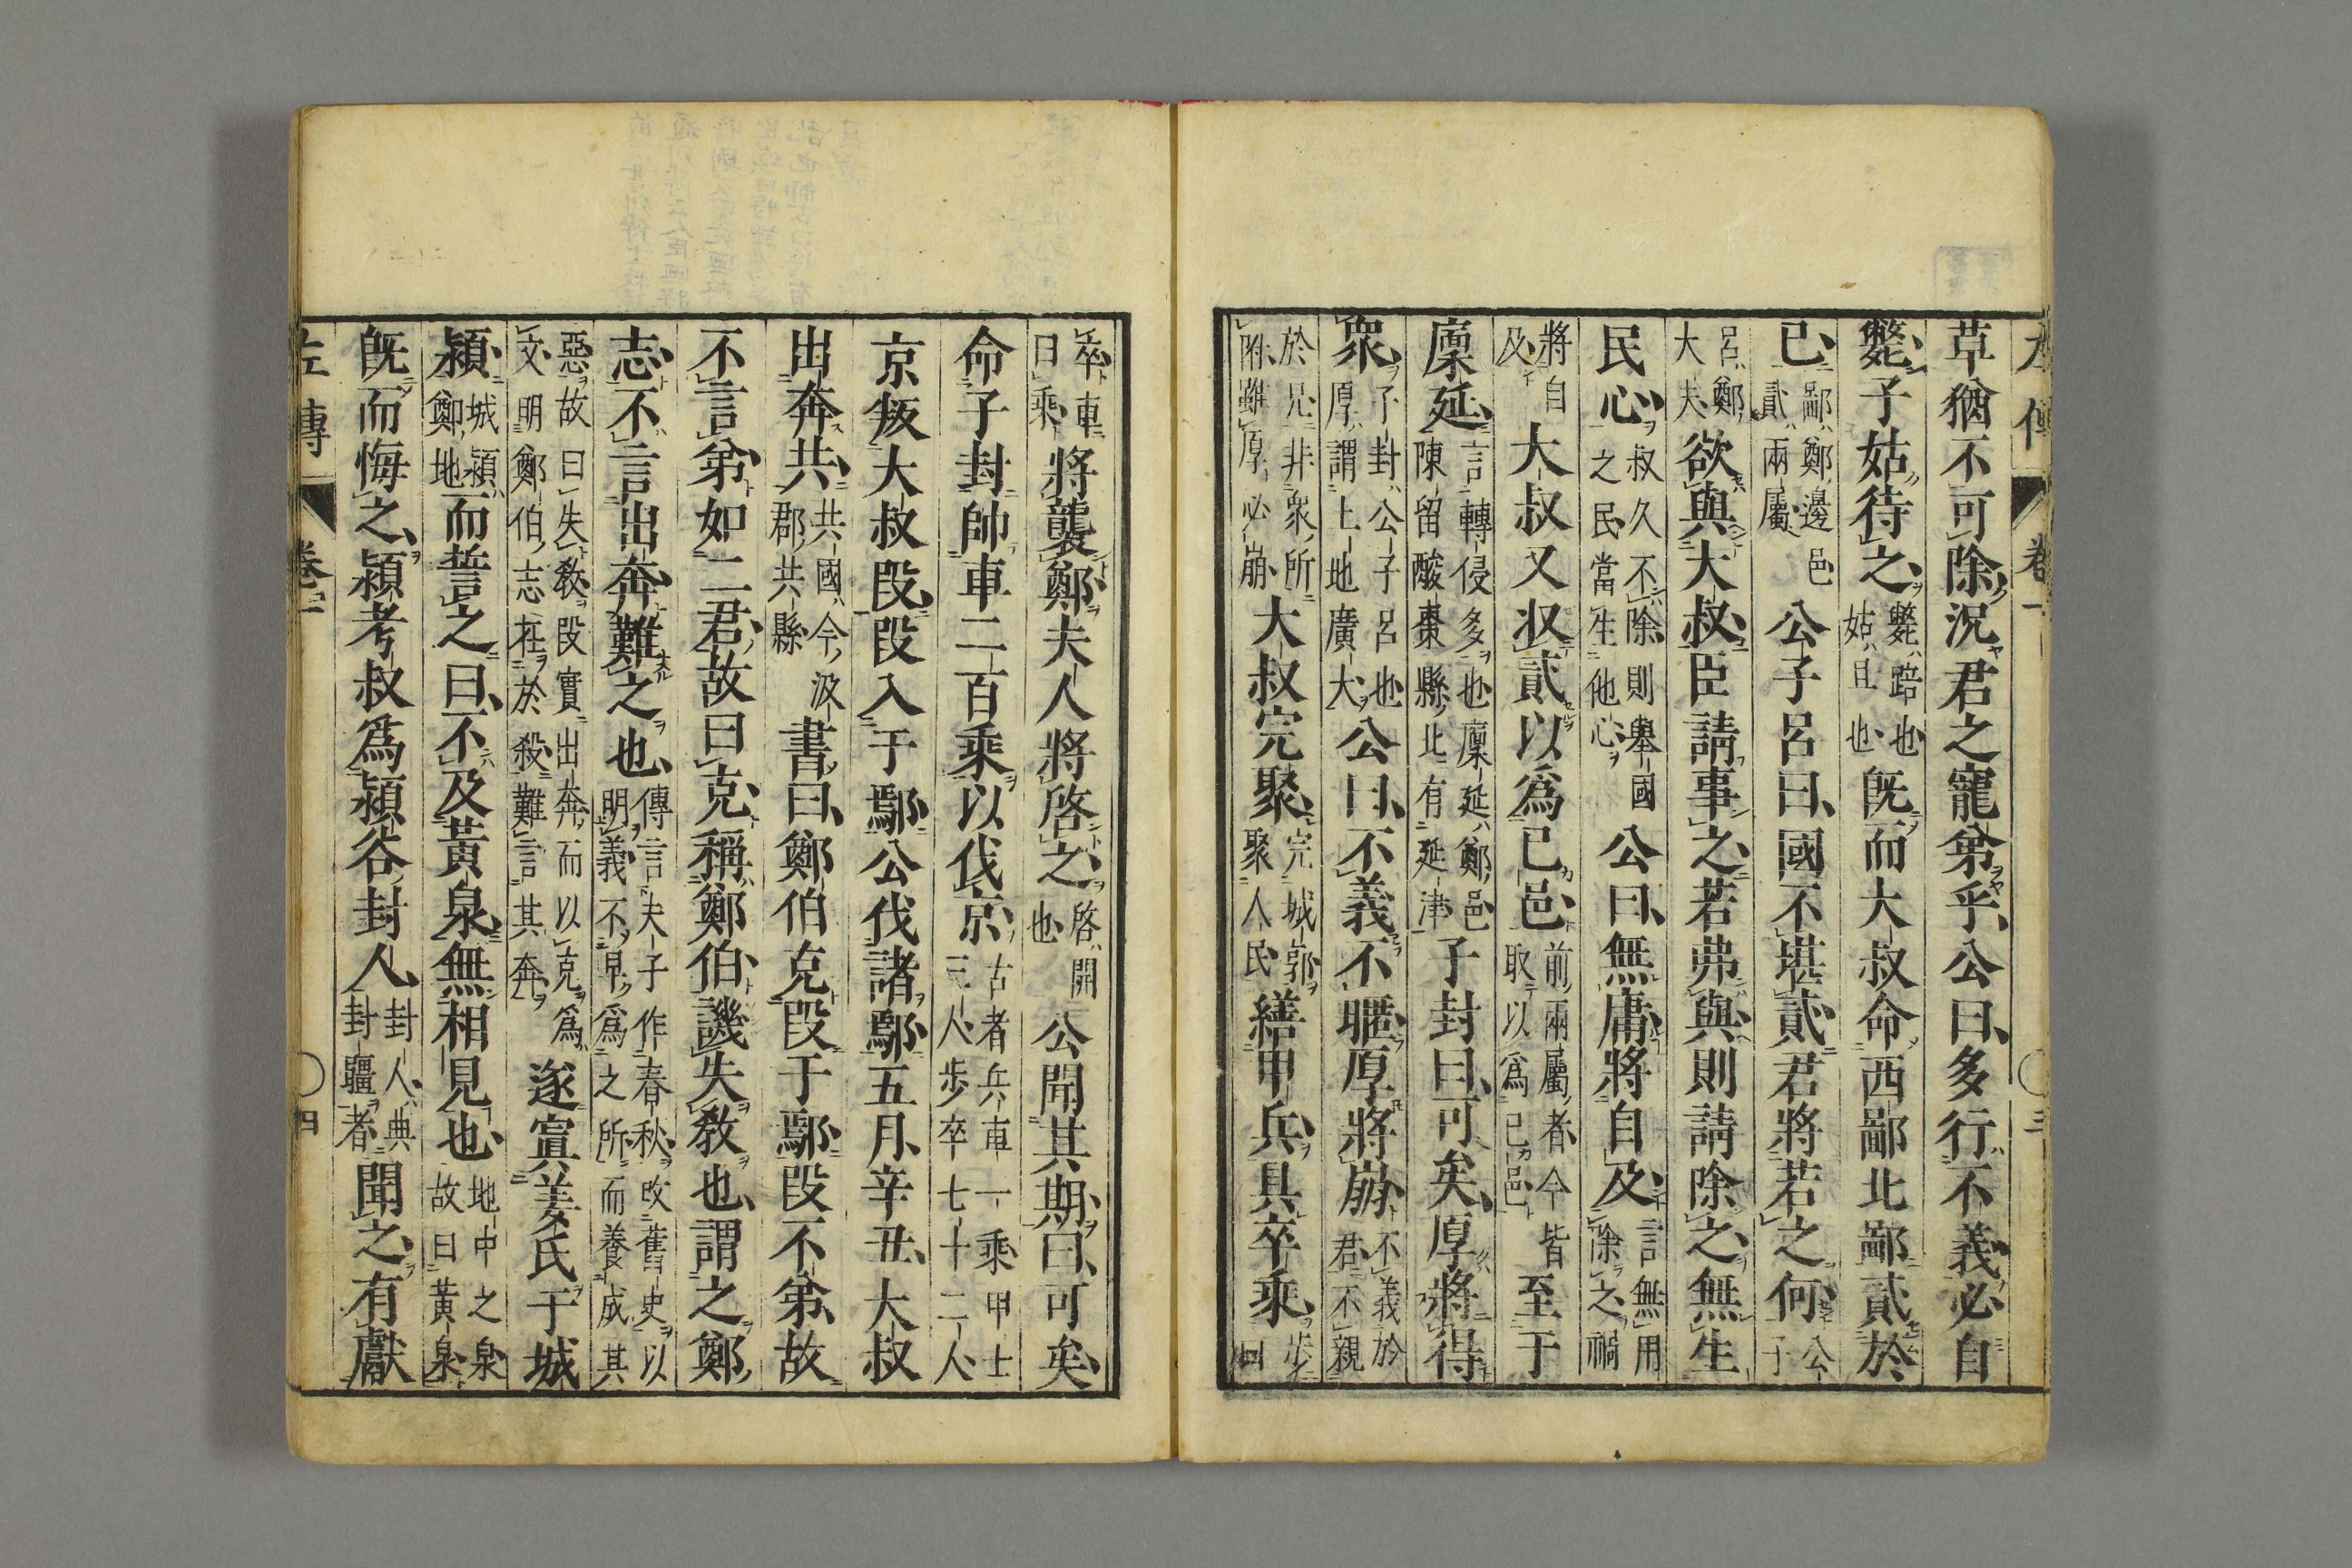 左傳 卷一 〇三
草猶不可除況君之寵弟乎公曰多行不義必自
斃子姑待之斃踣也姑且也既而大叔命西鄙北鄙貳於
已鄙鄭邊邑貳兩屬公子呂曰國不堪貳君將若之何公子
呂鄭大夫欲與大叔臣請事之若弗與則請除之無生
民心叔久不除則舉國之民當生他心公曰無庸將自及言無用除之禍
將自及大叔又収貳以爲已邑前兩屬者今皆取以爲已邑至于
廩延言轉侵多也廩延鄭邑陳留酸棗縣北有延津子封曰可矣厚將得
衆子封公子呂也厚謂土地廣大公曰不義不暱厚將崩不義於君不親
於兄非衆所附雖厚必崩大叔完聚完城郭聚人民繕甲兵具卒乘步曰
卒車曰乘將襲鄭夫人將啓之啓開也公聞其期曰可矣
命子封帥車二百乘以伐京古者兵車一乘甲士三人步卒七十二人
京叛大叔段段入于鄢公伐諸鄢五月辛丑大叔
出奔共共國今汲郡共縣書曰鄭伯克段于鄢段不弟故
不言弟如二君故曰克稱鄭伯譏失敎也謂之鄭
志不言出奔難之也傳言夫子作春秋改舊史以明義不早爲之所而養成其
惡故曰失敎段實出奔而以克爲文明鄭伯志在於殺難言其奔遂寘姜氏于城
潁城潁鄭地而誓之曰不及黃泉無相見也地中之泉故曰黃泉
既而悔之潁考叔爲潁谷封人封人典封疆者聞之有獻
左傳 卷一 〇四